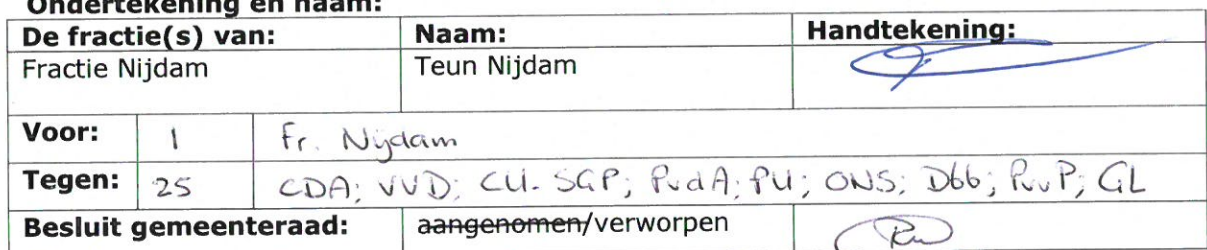 Ondertekening en naam:
De fractie(s) van: Naam: Handtekening:
Fractie Nijdam Teun Nijdam
Voor: 1 Fr. Nijdam
Tegen: 25 CDA; VVD; CU-SGP; PvdA; PU; ONS; D66; PvvP; GL
Besluit gemeenteraad: aangenomen/verworpen